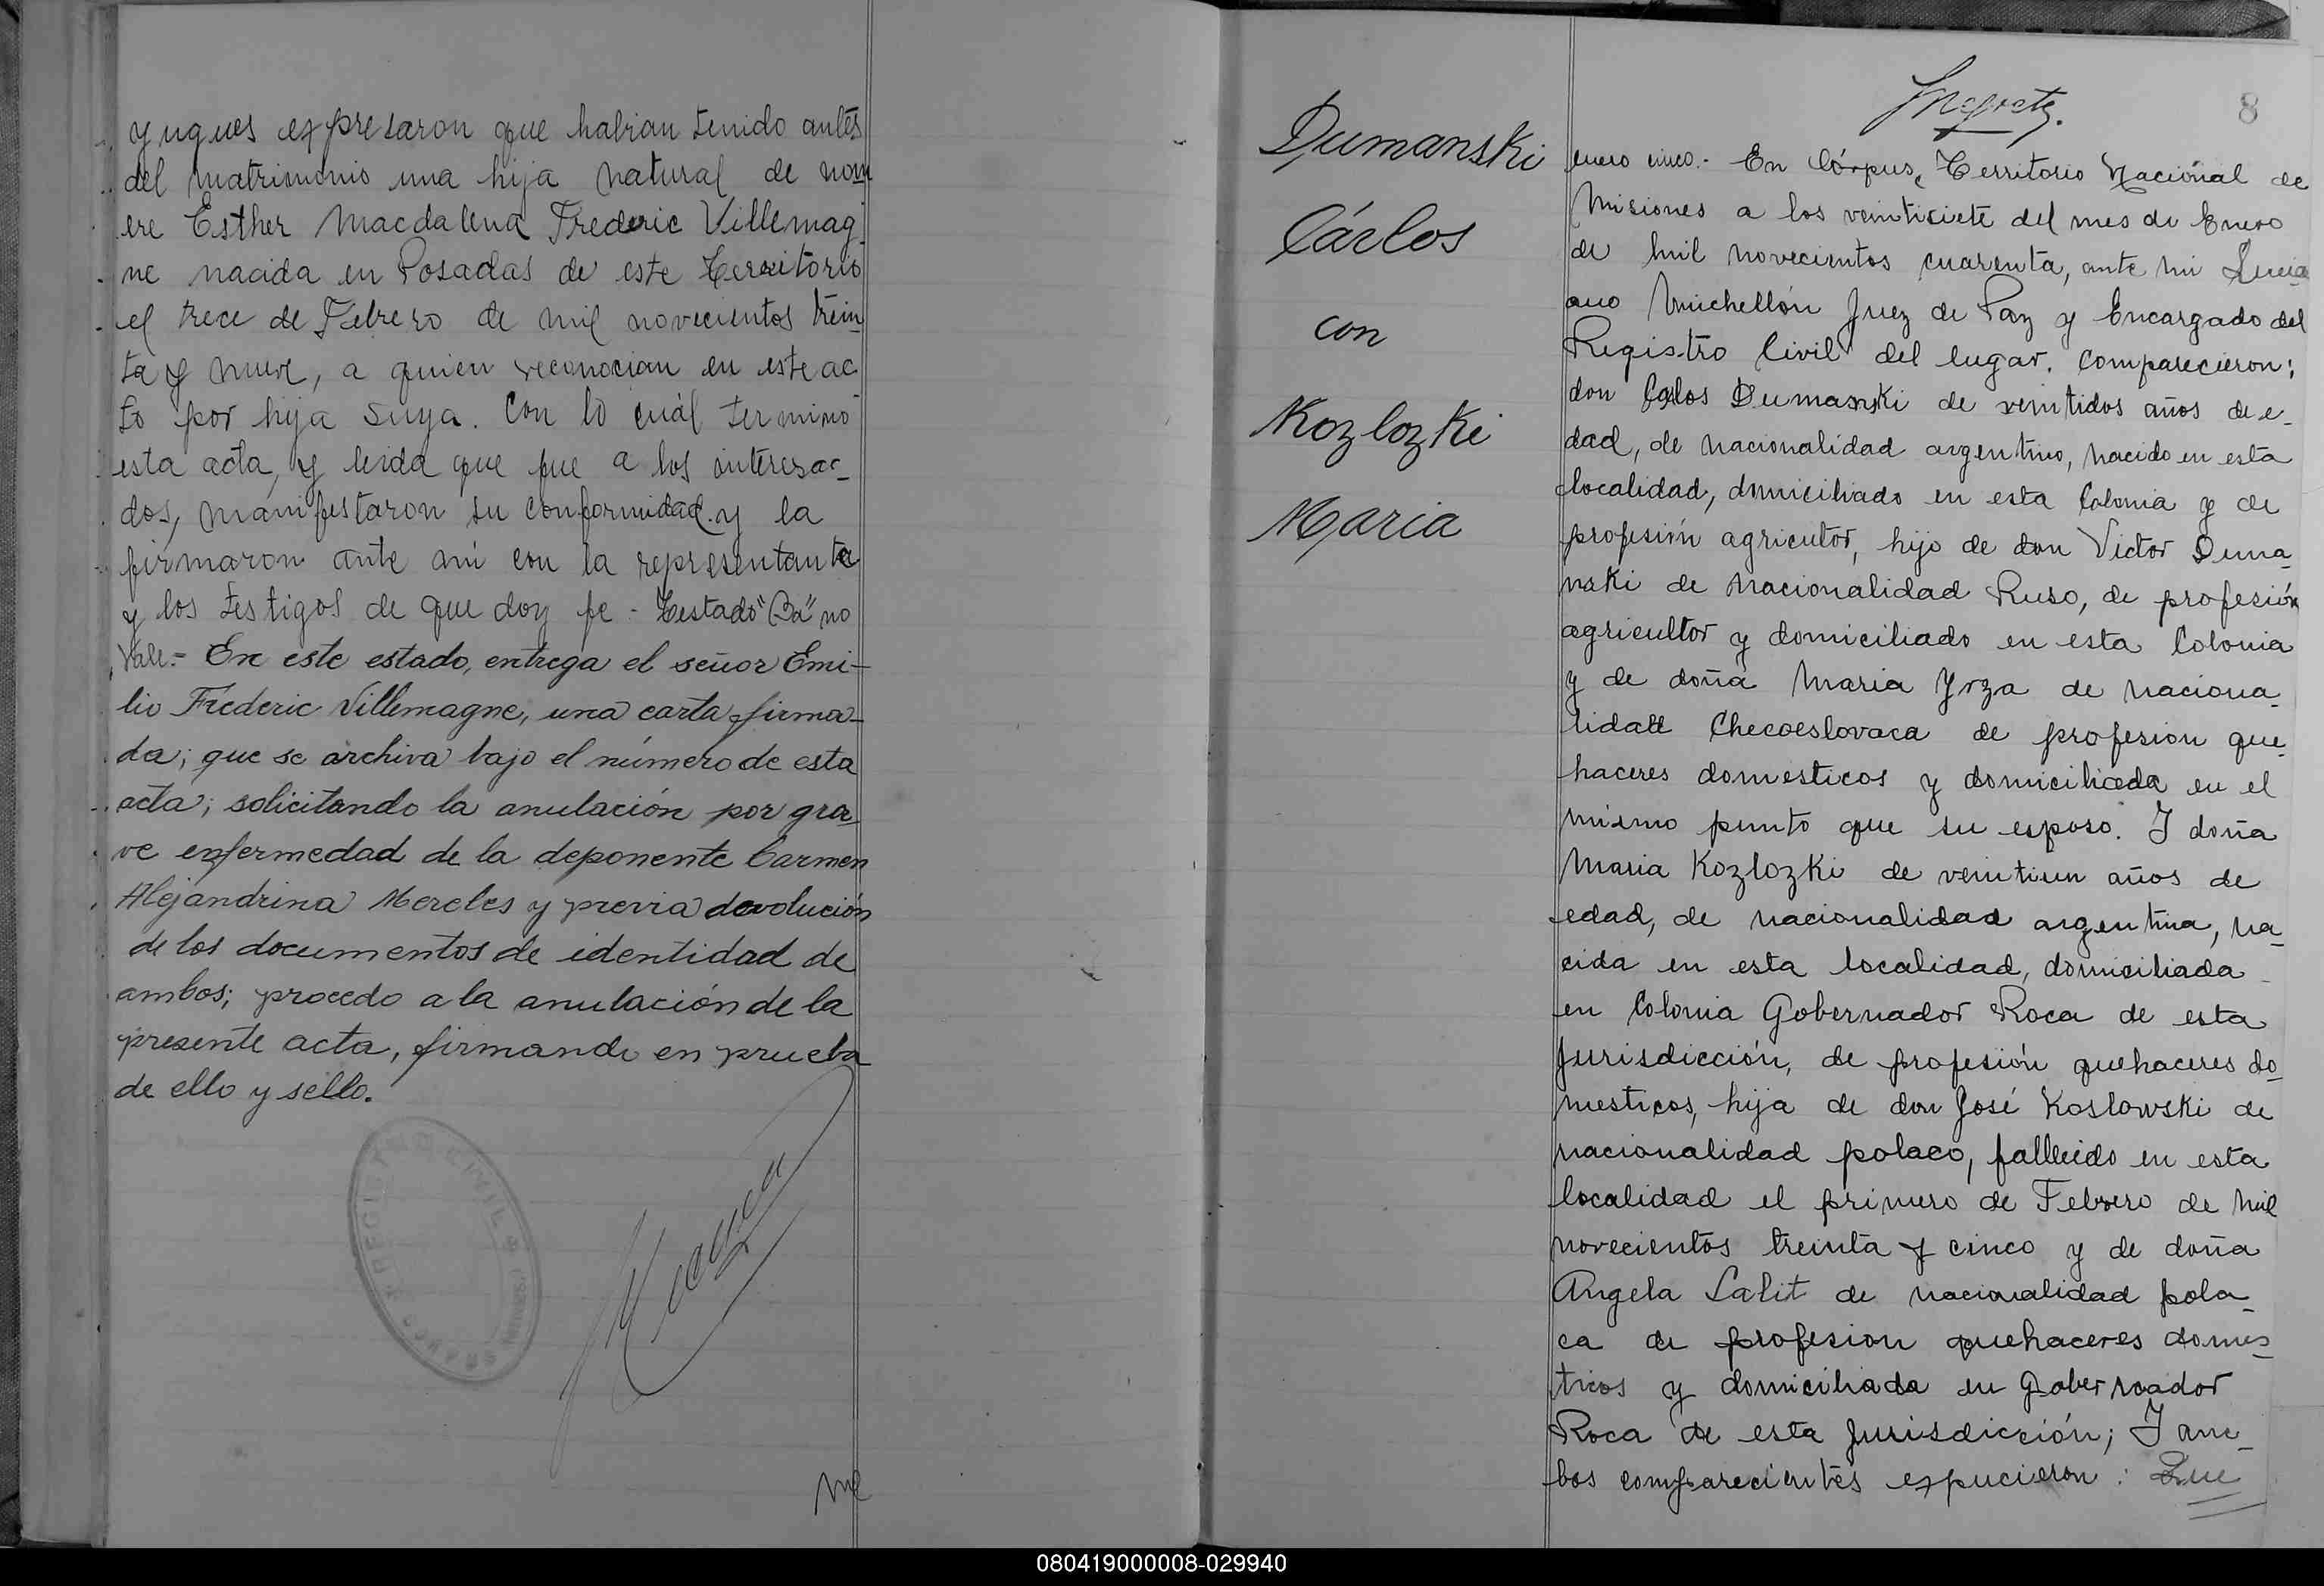 yugues expresaron que habian tenido antes
del matrimonio una hija natural de nom
bre Esther Macdalena Frederic Villemag
ne nacida en Posadas de este Territorio
el trece de Febrero de mil novecientos trein
ta y nueve, a quien reconocian en este ac
to por hija suya. Con lo cuál terminó
esta acta, y leida que fue a los interesa-
dos, manifestaron su conformidad y la
firmaron ante mi con la representante
y los testigos de que doy fe - Testado "Ba" no
Vale.- En este estado, entrega el señor Emi-
lio Fréderic Villemagne, una carta firma-
da; que se archiva bajo el número de esta
acta; solicitando la anulación por gra-
ve enfermedad de la deponente Carmen
Alejandrina Mereles y previa devolución
de los documentos de identidad de
ambos; procedo a la anulación de la
presente acta, firmando en prueba
de ello y sello.
REGISTRO CIVIL
Dumanski
Cárlos
con
Kozlozki
Maria
8
enero cinco.- En Córpus, Territorio Nacional de
Misiones a los veintisiete del mes de Enero
de mil novecientos cuarenta, ante mi Luci
ano Michellón Juez de Paz y Encargado del
Registro Civil del lugar. Comparecieron:
don Carlos Dumanski de veintidos años de e-
dad, de nacionalidad argentino, nacido en esta
localidad, domiciliado en esta Colonia y de
profesión agricutor, hijo de don Victor Duma-
nski de Nacionalidad Ruso, de profesión
agricultor y domiciliado en esta Colonia
y de doña Maria Yrza de naciona-
lidad Checoeslovaca de profesion que-
haceres domesticos y domiciliada en el
mismo punto que su esposo. Y doña
Maria Kozlozki de veintiun años de
edad, de nacionalidad argentina, na-
cida en esta localidad, domiciliada
en Colonia Gobernador Roca de esta
Jurisdicción, de profesión quehaceres do-
mesticos, hija de don José Koslowski de
nacionalidad polaco, fallecido en esta
localidad el primero de Febrero de mil
novecientos treinta y cinco y de doña
Angela Salit de nacionalidad pola-
ca de profesion quehaceres domes-
ticos y domiciliada en Gobernador
Roca de esta Jurisdicción; Y am-
bos comparecientes expucieron: Que
080419000008-029940